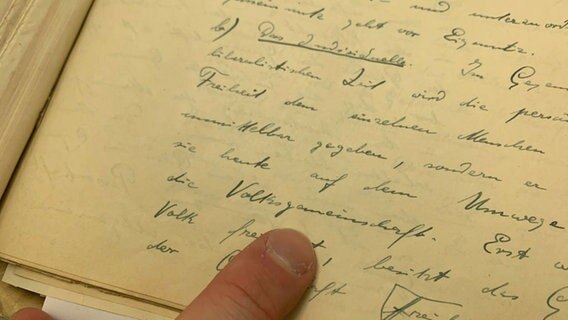 und unterord
geht vor Eigennutz.
b) Das Individuelle. Im Gegen
liberalistischen Zeit wird die persö
Freiheit dem einzelnen Menschen
unmittelbar gegeben, sondern er
sie heute auf dem Umwege
die Volksgemeinschaft. Erst w
Volk frei ist, besitzt das G
der